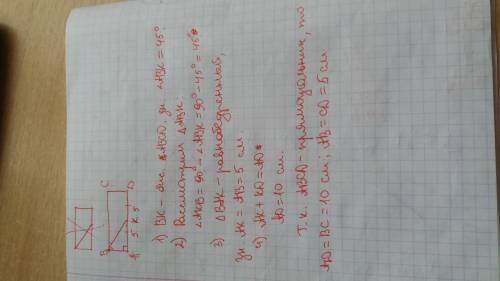 B
C
A
5
K
5
D
1) BK - бис. ∠ABCD, зн. ∠ABK = 45°
2) Рассмотрим △ABK.
∠AKB = 90° - ∠ABK = 90° - 45° = 45°
3) △BAK - равнобедренный,
зн. AK = AB = 5 см.
4) AK + KD = AD
AD = 10 см.
Т. к. ABCD - прямоугольник, то
AD = BC = 10 см; AB = CD = 5 см